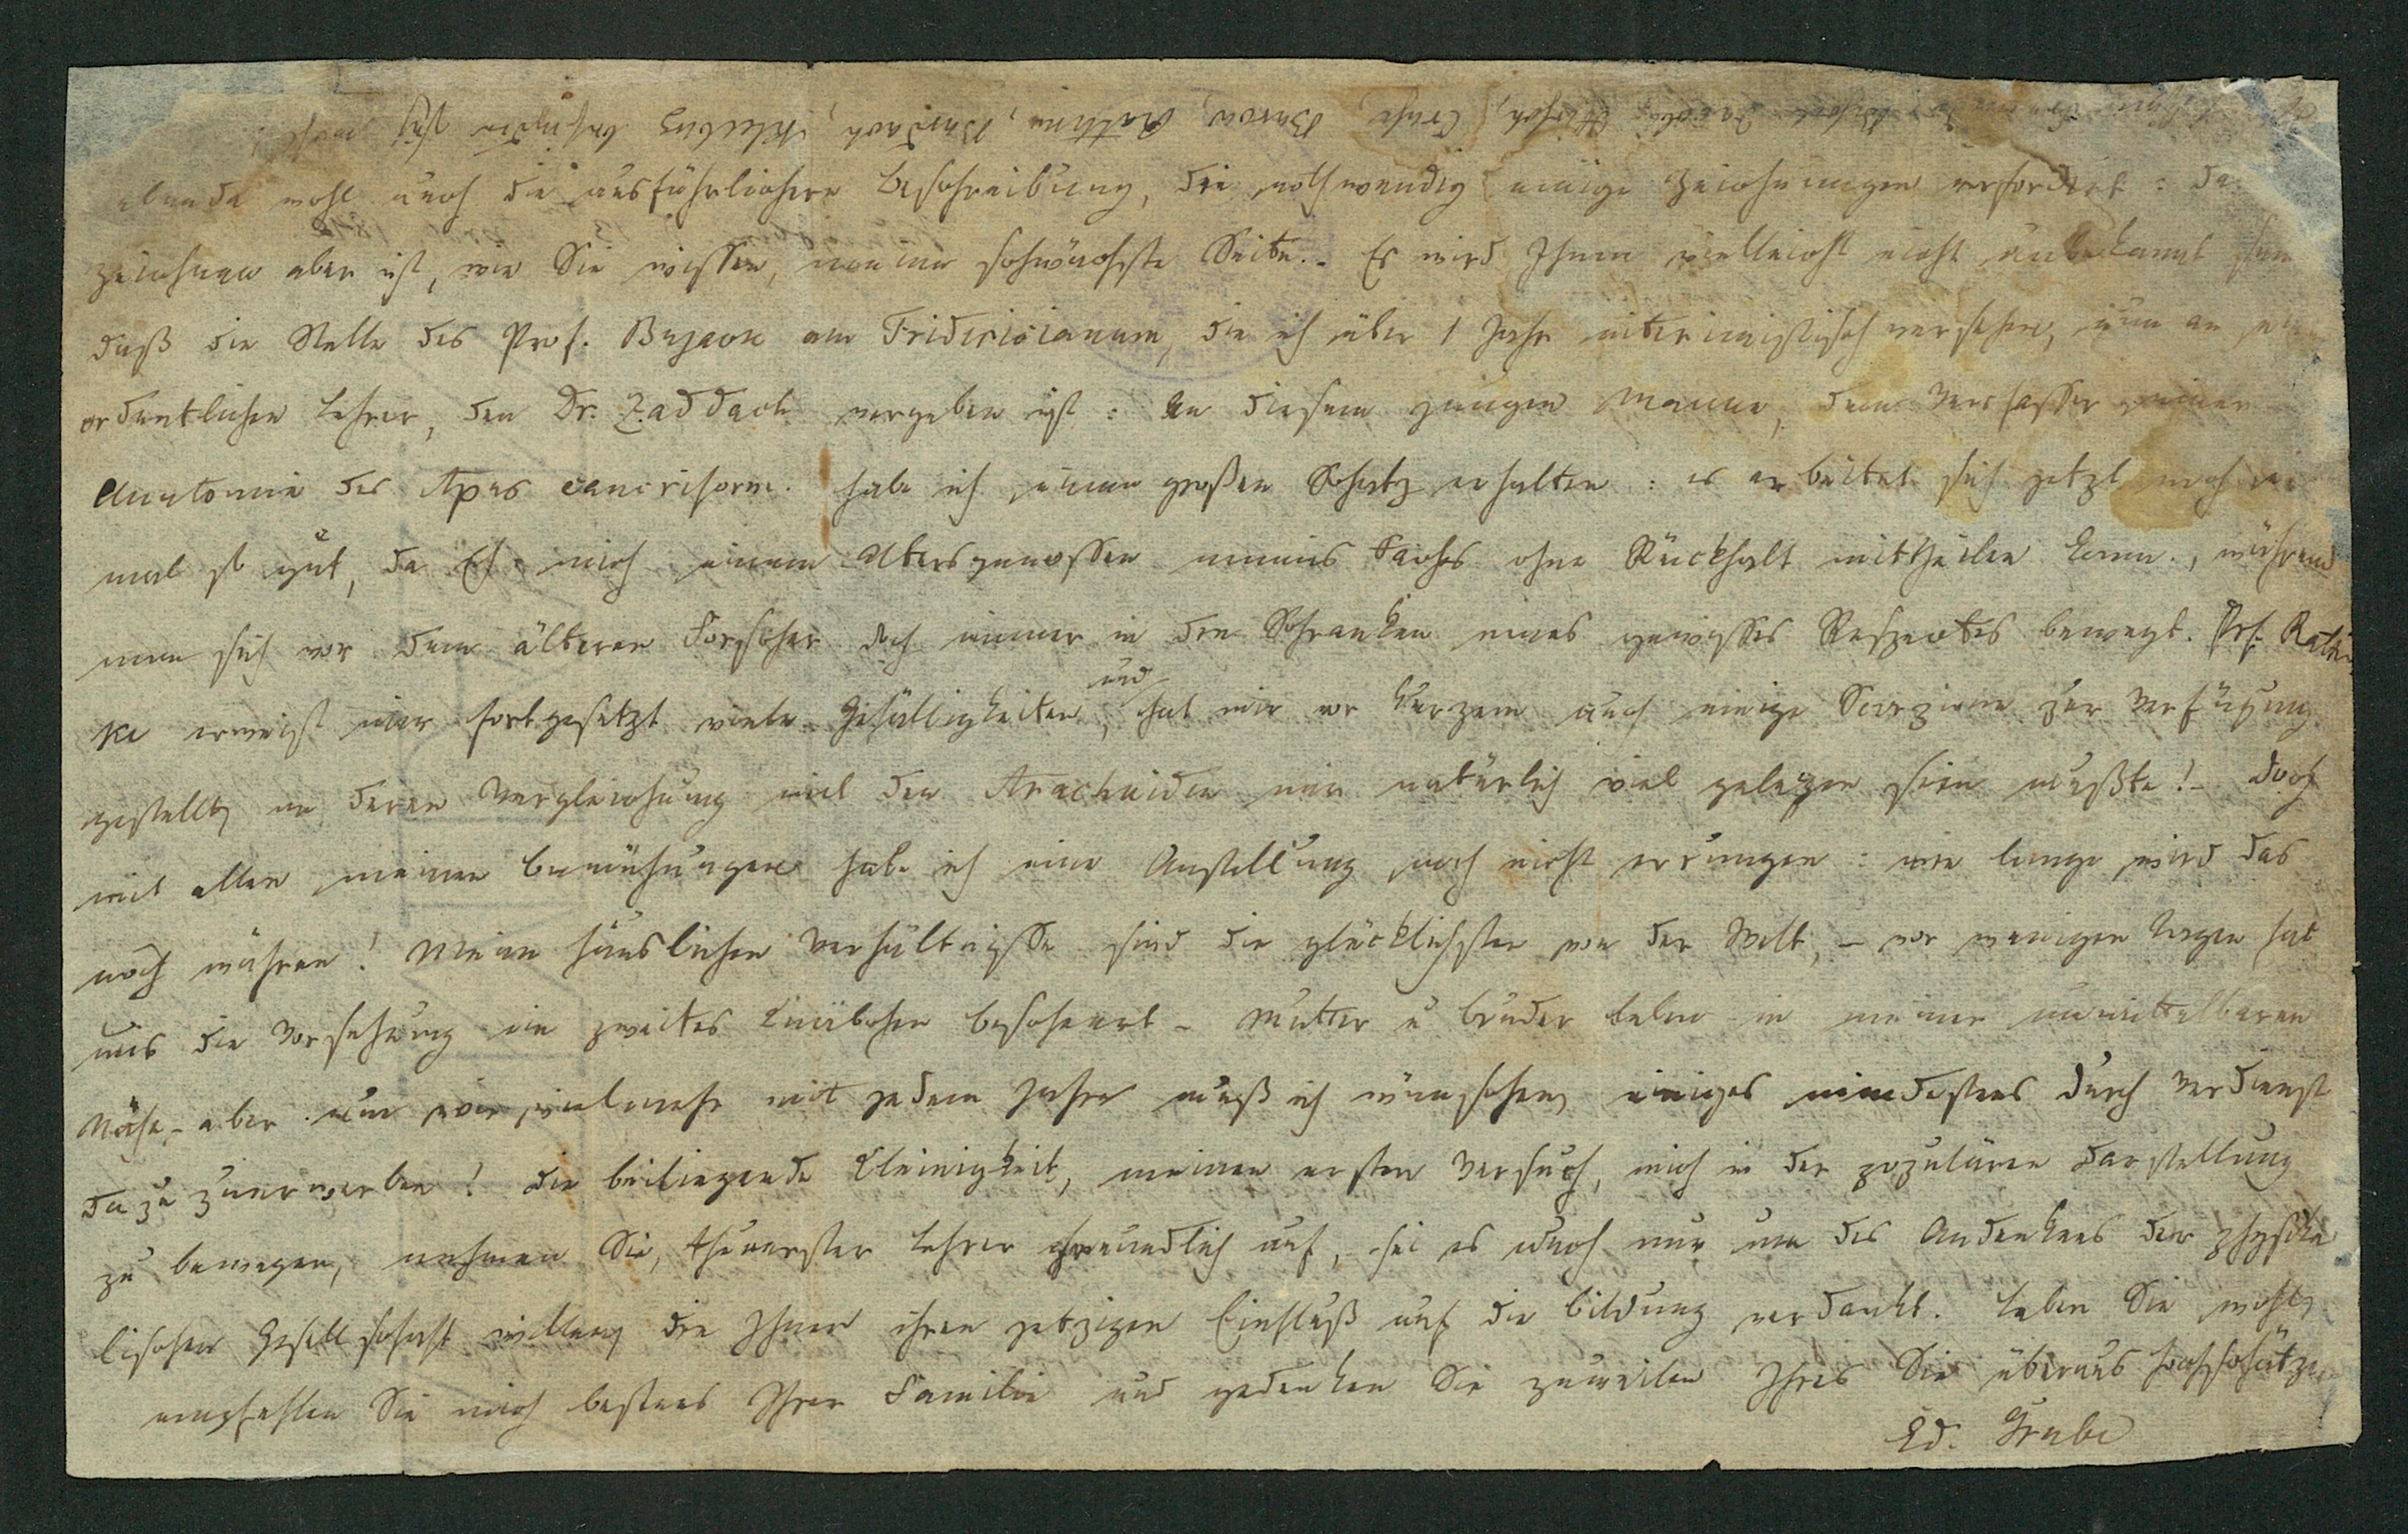 Jacobi, Hirsch, Cruse, Burow, Rathke, Burdach, Kleeberg befinden sich wohl.
ebenda wohl auch die ausführlichere Beschreibung, die nothwendig einige Zeichnungen erfordert: das
Zeichnen aber ist, wie Sie wissen, meine schwächste Seite. - Es wird Ihnen vielleicht nicht unbekannt sein
daß die Stelle des Prof. Bujack am Fridericianum, die ich über 1 Jahr interimistisch versehen, nun an
ordentlichen Lehrer, den Dr. Zaddach vergeben ist: An diesem jungen Manne, dem Verfasser einer
Anatomie des Apus cancriform. habe ich einen großen Schatz erhalten: es arbeitet sich jetzt noch ein
mal so gut, da ich mich einem Altersgenossen meines Faches ohne Rückhalt mittheilen kann, während
man sich vor dem älteren Forscher doch immer in den Schranken eines gewisses Respectes bewegt. Prof. Rath
ke erweist mir fortgesetzt viele Gefälligkeiten, und hat mir vor Kurzem auch einige Scorpione zur Verfügung
gestellt, an deren Vergleichung mit den Arachniden mir natürlich viel gelegen sein mußte! - Doch
mit allen meinen Bemühungen habe ich eine Anstellung noch nicht errungen: wie lange wird das
noch währen! Meine häuslichen Verhältnisse sind die glücklichsten von der Welt, - vor wenigen Tagen hat
uns die Vorsehung ein zweites Knäbchen beschert - Mutter u Bruder leben in meiner unmittelbaren
Nähe, - aber um so vielmehr mit jedem Jahre muß ich wünschen, einiges mindestens durch Verdienst
dazu zuerwerben! Die beiliegende Kleinigkeit, meinen ersten Versuch, mich in der populären Darstellung
zu bewegen, nehmen Sie, theuerster Lehrer freundlich auf, sei es auch nur um des Andenkens der physika
lischen Gesellschaft willen, die Ihnen ihren jetzigen Einfluß auf die Bildung verdankt. Leben Sie wohl,
empfehlen Sie mich bestens Ihrer Familie und gedenken Sie zuweilen Ihres Sie überaus hochschätzen
Ed. Grube